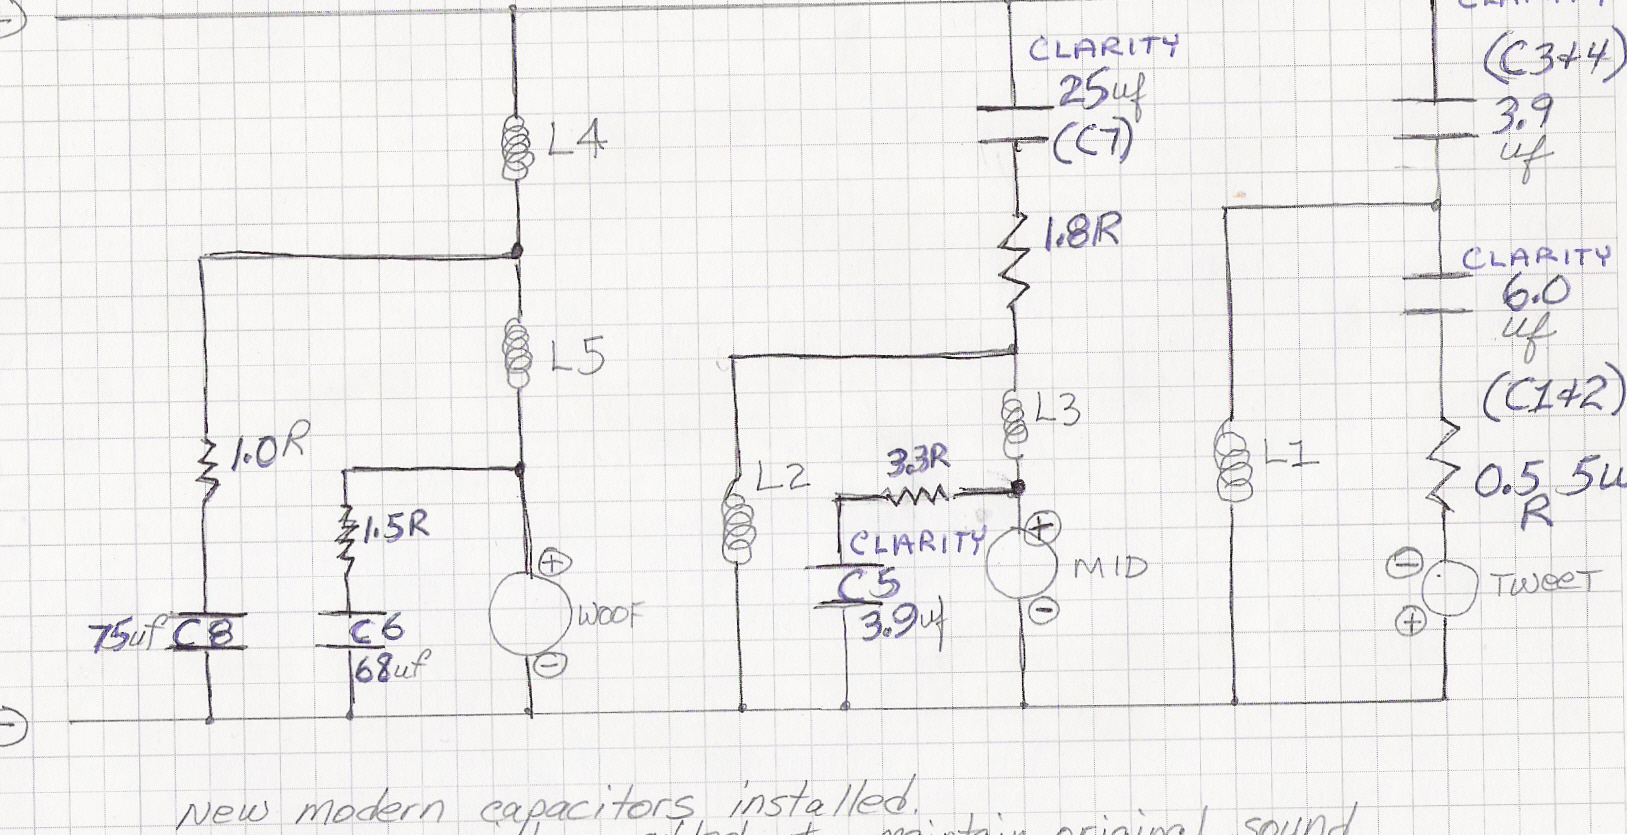 CLARITY
(C3+4)
3.9
uf
CLARITY
25uf
(C7)
L4
1.8R
CLARITY
6.0
uf
(C1+2)
L5
L3
1.0R
3.3R
L2
L1
0.5
R
1.5R
+
CLARITY
+
MID
-
TWEET
C5
3.9uf
-
+
75uf C8
C6
68uf
WOOF
-
-
New modern capacitors installed.
maintain original sound